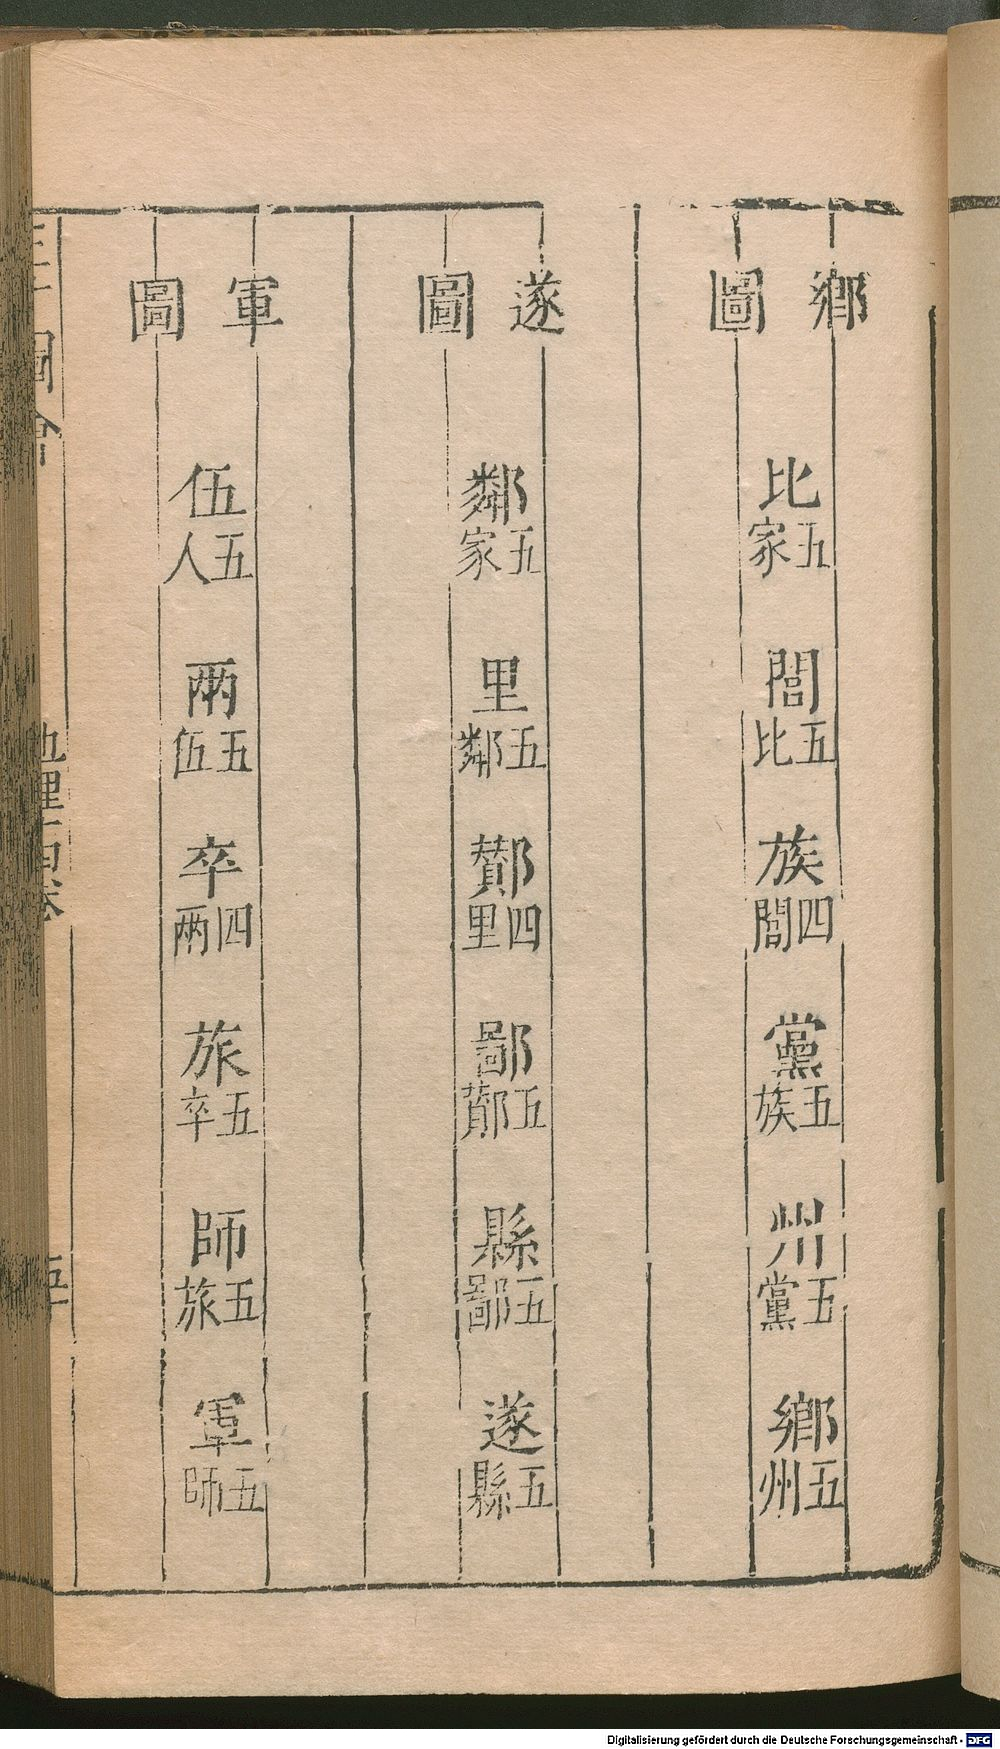 鄉圖
比五家 閭五比 族四閭 黨五族 州五黨 鄉五州
遂圖
鄰五家 里五鄰 酇四里 鄙五酇 縣五鄙 遂五縣
軍圖
伍五人 兩五伍 卒四兩 旅五卒 師五旅 軍五師
圖會
地理 卷
Digitalisierung gefördert durch die Deutsche Forschungsgemeinschaft - DFG